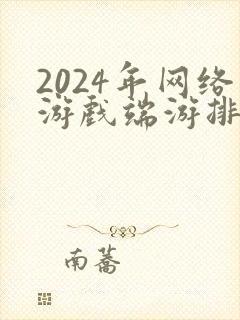 2024年网络
游戏端游排
南蓍